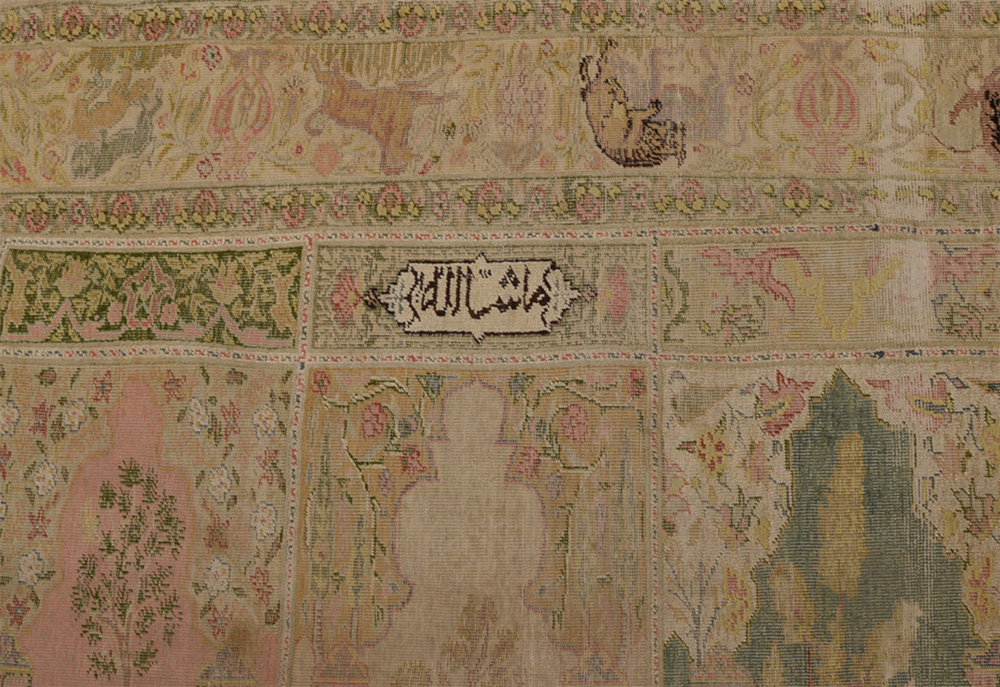 ماشاالله